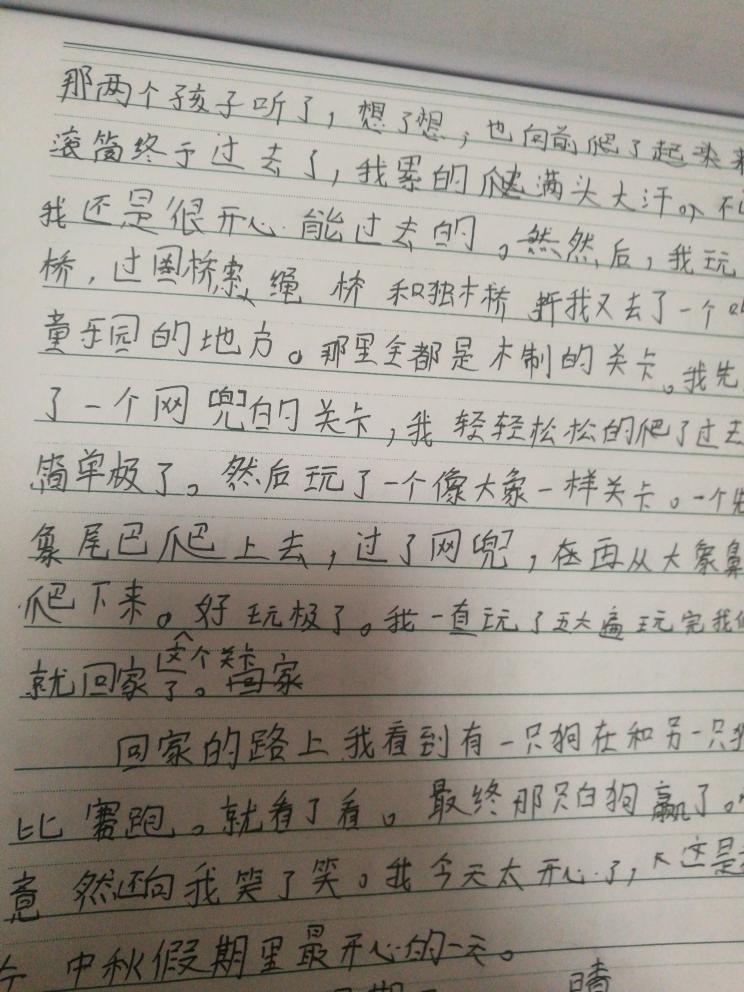 那两个孩子听了，想了想，也向前爬了起来
滚筒终于过去了，我累的满头大汗。不
我还是很开心能过去的。然后，我玩
桥，过索绳桥和独木桥我又去了一个
童乐园的地方。那里全都是木制的关卡。我先
了一个网兜的关卡，我轻轻松松的爬了过去
简单极了。然后玩了一个像大象一样关卡。一个先
象尾巴爬上去，过了网兜，在再从大象鼻
爬下来。好玩极了。我一直玩了五六遍玩完我们
这个关卡
就回家了。回家
回家的路上我看到有一只狗在和另一只狗
比赛跑。就看了看。最终那只白狗赢了。
竟然还向我笑了笑。我今天太开心了，这是
中秋假期里最开心的一天。
晴